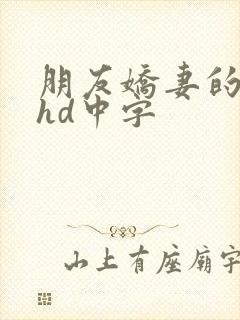 朋友嬌妻的
hd中字
山上有座廟字